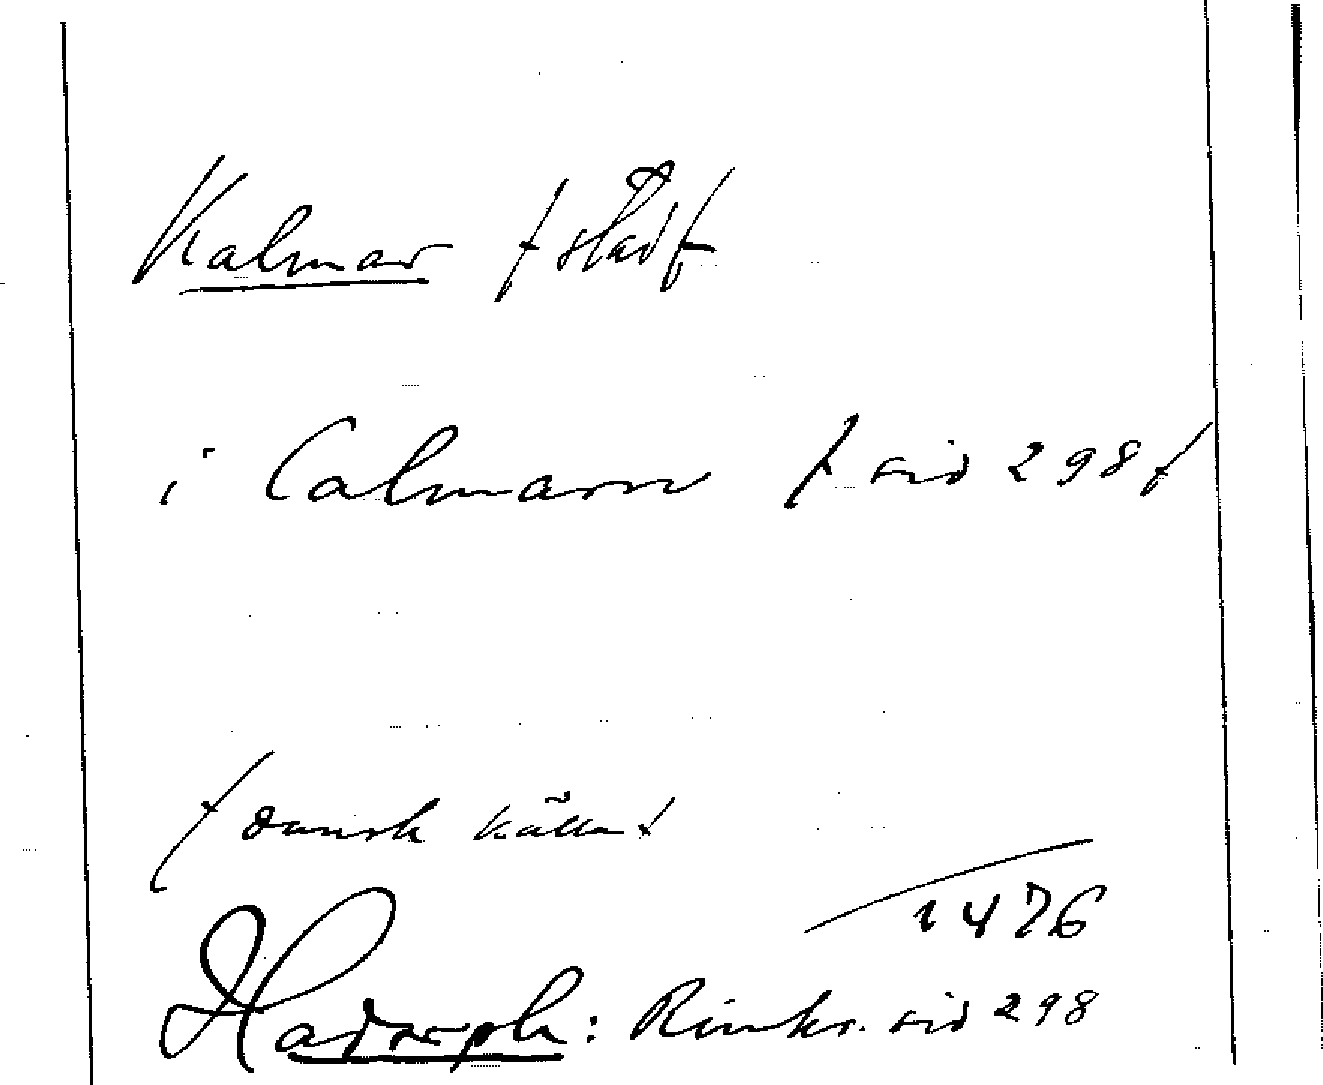 Kalmar / stad /
i Calmarn / sid 298 /
/ dansk källa /
1476
Hadorph: Rimkr. sid 298